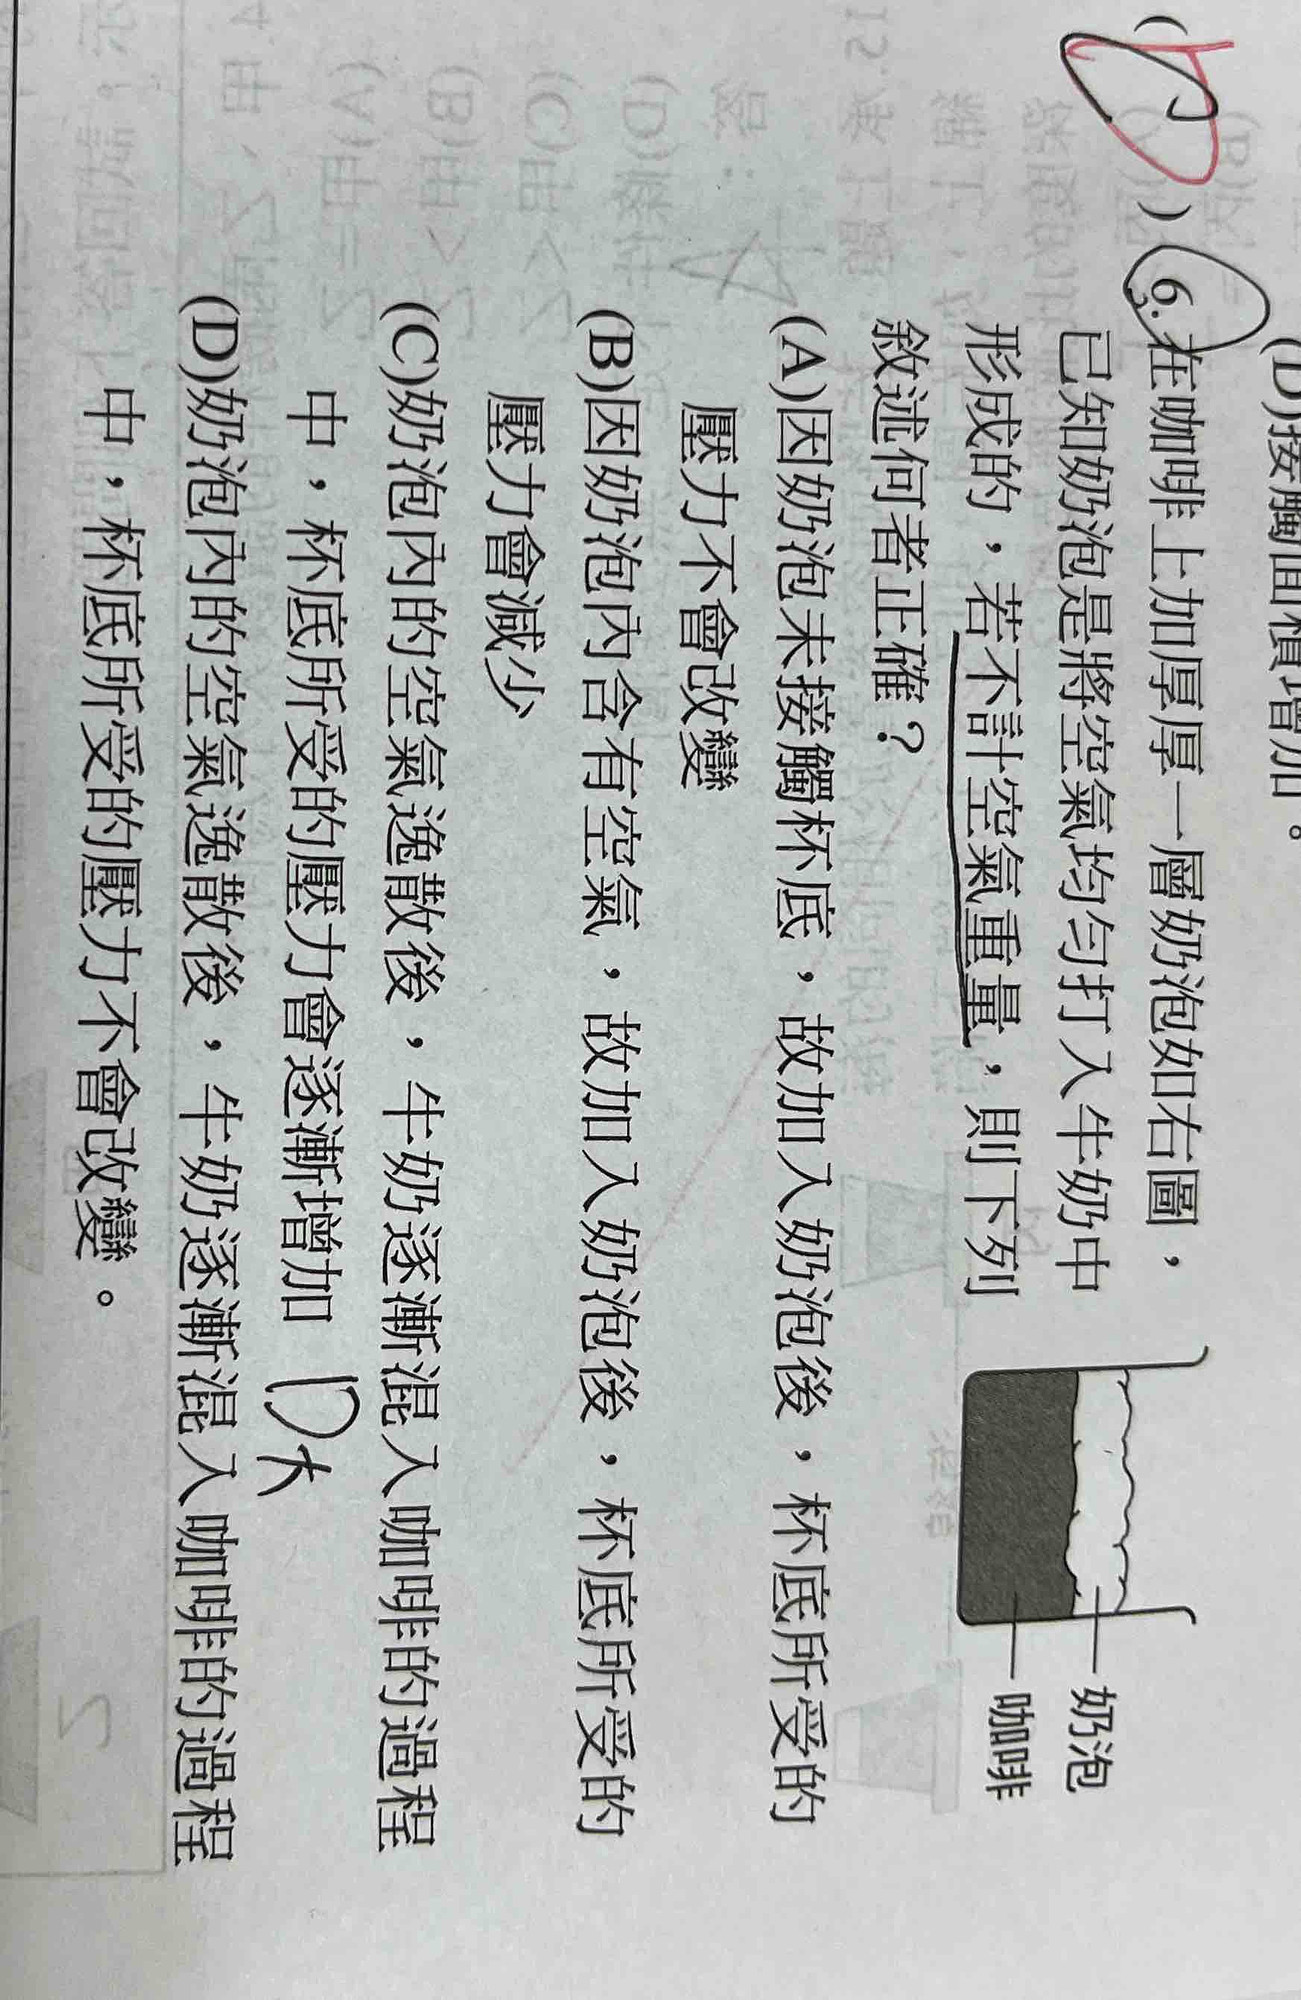 (D)接觸面積增加。
( C ) 6.在咖啡上加厚厚一層奶泡如右圖，
已知奶泡是將空氣均勻打入牛奶中
形成的，若不計空氣重量，則下列
敘述何者正確？
奶泡
咖啡
(A)因奶泡未接觸杯底，故加入奶泡後，杯底所受的
壓力不會改變
(B)因奶泡內含有空氣，故加入奶泡後，杯底所受的
壓力會減少
(C)奶泡內的空氣逸散後，牛奶逐漸混入咖啡的過程
中，杯底所受的壓力會逐漸增加
(D)奶泡內的空氣逸散後，牛奶逐漸混入咖啡的過程
中，杯底所受的壓力不會改變。